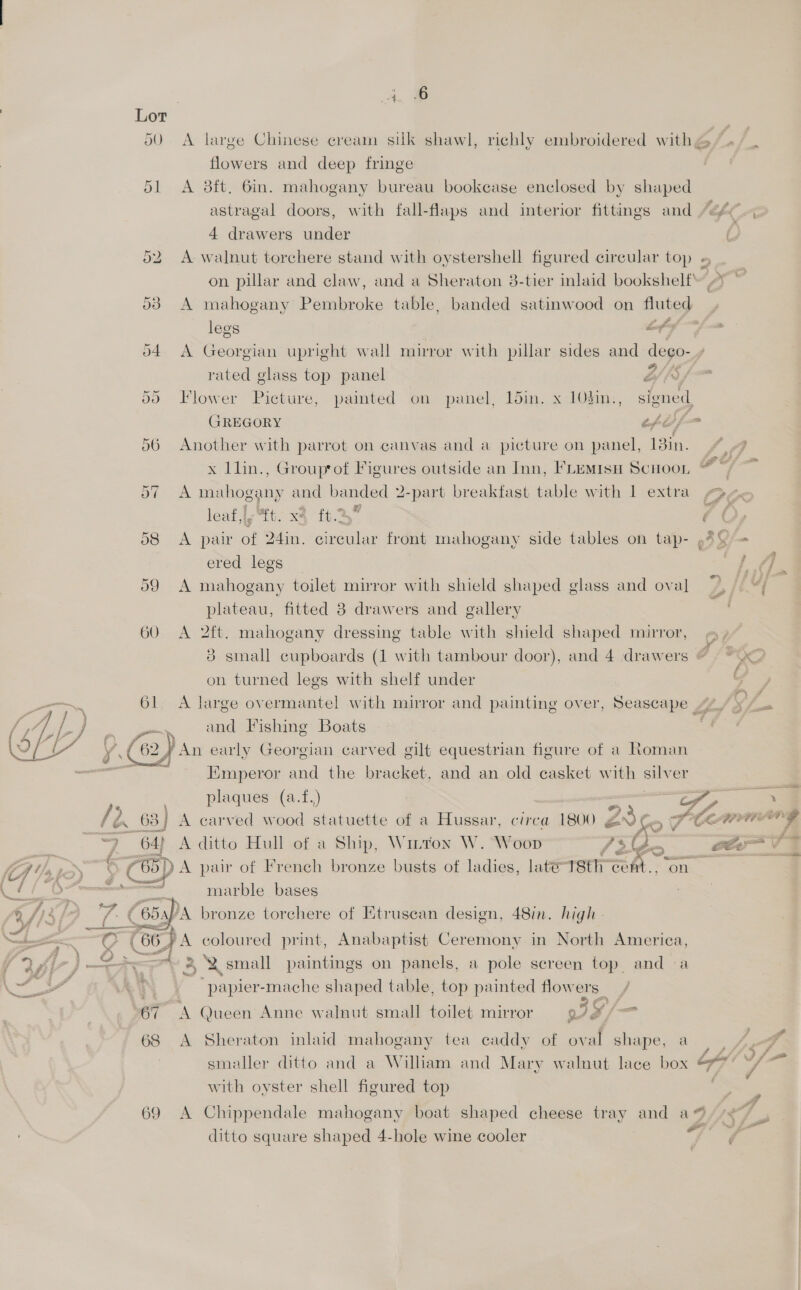 6
Lot
50 A large Chinese cream silk shawl, richly embroidered with
flowers and deep fringe
51 A 3ft. 6in. mahogany bureau bookcase enclosed by shaped
astragal doors, with fall-flaps and interior fittings and
4 drawers under
52 A walnut torchere stand with oystershell figured circular top
on pillar and claw, and a Sheraton 3-tier inlaid bookshelf
53 A mahogany Pembroke table, banded satinwood on fluted
legs
54 A Georgian upright wall mirror with pillar sides and deco-
rated glass top panel
55 Flower Picture, painted on panel, 15in. x 10¾in., signed
GREGORY
56 Another with parrot on canvas and a picture on panel, 13in.
x 11in., Group of Figures outside an Inn, FLEMISH SCHOOL
57 A mahogany and banded 2-part breakfast table with 1 extra
leaf, ft. x ft.
58 A pair of 24in. circular front mahogany side tables on tap-
ered legs
59 A mahogany toilet mirror with shield shaped glass and oval
plateau, fitted 3 drawers and gallery
60 A 2ft. mahogany dressing table with shield shaped mirror,
3 small cupboards (1 with tambour door), and 4 drawers
on turned legs with shelf under
61 A large overmantel with mirror and painting over, Seascape
and Fishing Boats
62 An early Georgian carved gilt equestrian figure of a Roman
Emperor and the bracket, and an old casket with silver
plaques (a.f.)
63 A carved wood statuette of a Hussar, circa 1800
64 A ditto Hull of a Ship, WILTON W. WOOD
65 A pair of French bronze busts of ladies, late 18th cent., on
marble bases
65A A bronze torchere of Etruscan design, 48in. high
66 A coloured print, Anabaptist Ceremony in North America,
2 small paintings on panels, a pole screen top and a
papier-mache shaped table, top painted flowers
67 A Queen Anne walnut small toilet mirror
68 A Sheraton inlaid mahogany tea caddy of oval shape, a
smaller ditto and a William and Mary walnut lace box
with oyster shell figured top
69 A Chippendale mahogany boat shaped cheese tray and a
ditto square shaped 4-hole wine cooler